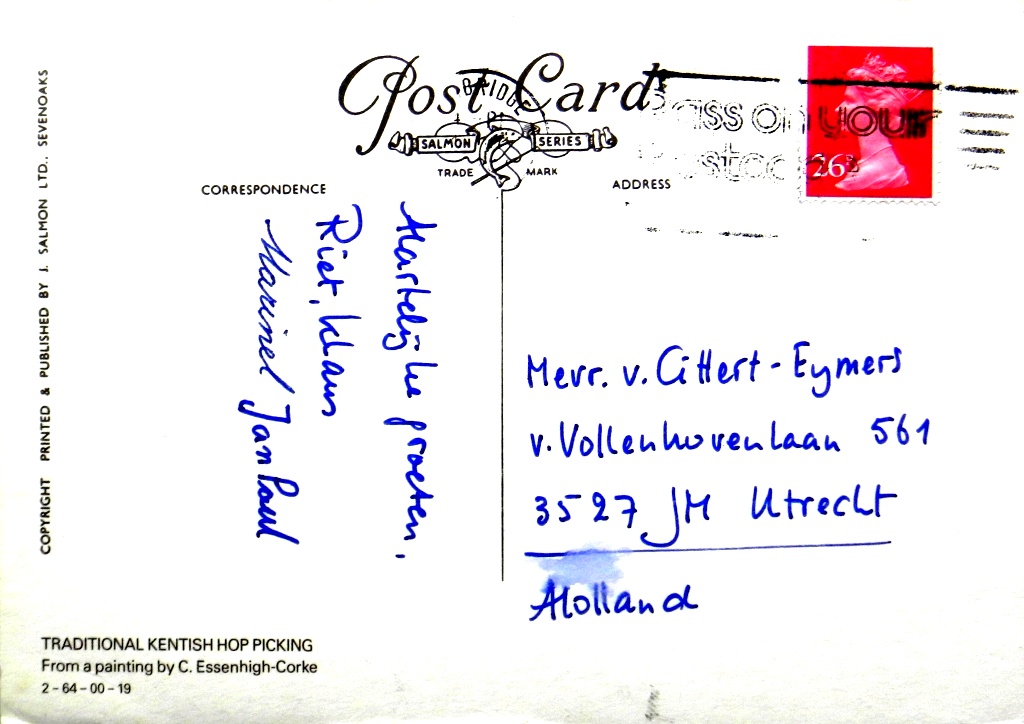 Post Card
SALMON SERIES
TRADE MARK
CORRESPONDENCE
ADDRESS
COPYRIGHT PRINTED & PUBLISHED BY J. SALMON LTD., SEVENOAKS
Hartelijke groeten,
Riet, Klaus
Marinel Jan Paul
26
Mevr. v. Cittert-Eymers
v. Vollenhovenlaan 561
3527 JM Utrecht
Holland
TRADITIONAL KENTISH HOP PICKING
From a painting by C. Essenhigh-Corke
2-64-00-19